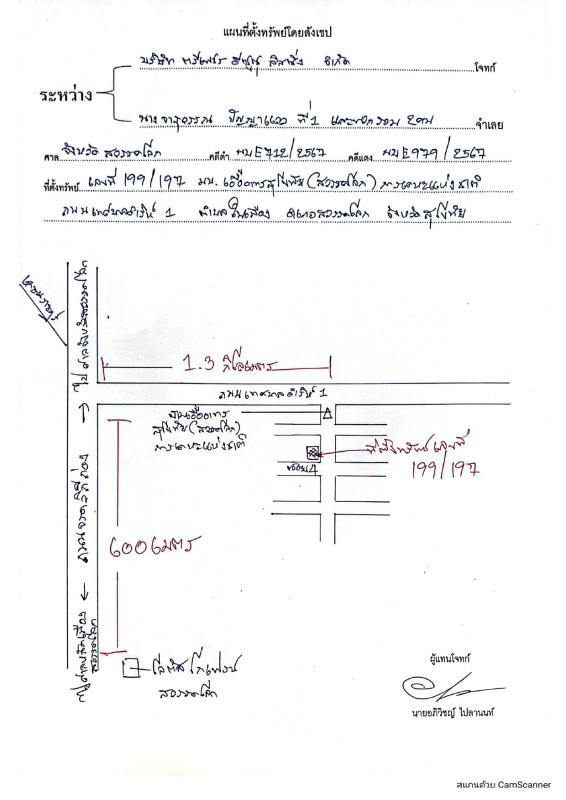 แผนที่ตั้งทรัพย์โดยสังเขป
บริษัท ลิสซิ่ง จำกัด โจทก์
ระหว่าง
ปัญญาแวว ที่ 1 และพวกรวม 2 คน จำเลย
ศาล จังหวัด สวรรคโลก คดีดำ ผบ E 712 / 2567 คดีแดง ผบ E 979 / 2567
ที่ตั้งทรัพย์ เลขที่ 199/197 มบ. เอื้ออาทรสุโขทัย (สวรรคโลก) การเคหะแห่งชาติ
ถนน เทศบาลดำริห์ 1 ตำบล ในเมือง อำเภอสวรรคโลก จังหวัด สุโขทัย
ไปศาลจังหวัดสวรรคโลก
1.3 กิโลเมตร
ถนน เทศบาลดำริห์ 1
บ้านเอื้ออาทร
สุโขทัย (สวรรคโลก)
การเคหะแห่งชาติ
ที่ตั้งทรัพย์ เลขที่
199/197
ซอย
ถนน จรดวิถีถ่อง
600 เมตร
สวรรคโลก
โลตัส
สวรรคโลก
ผู้แทนโจทก์
นายอภิวิชญ์ ไปดานนท์
สแกนด้วย CamScanner